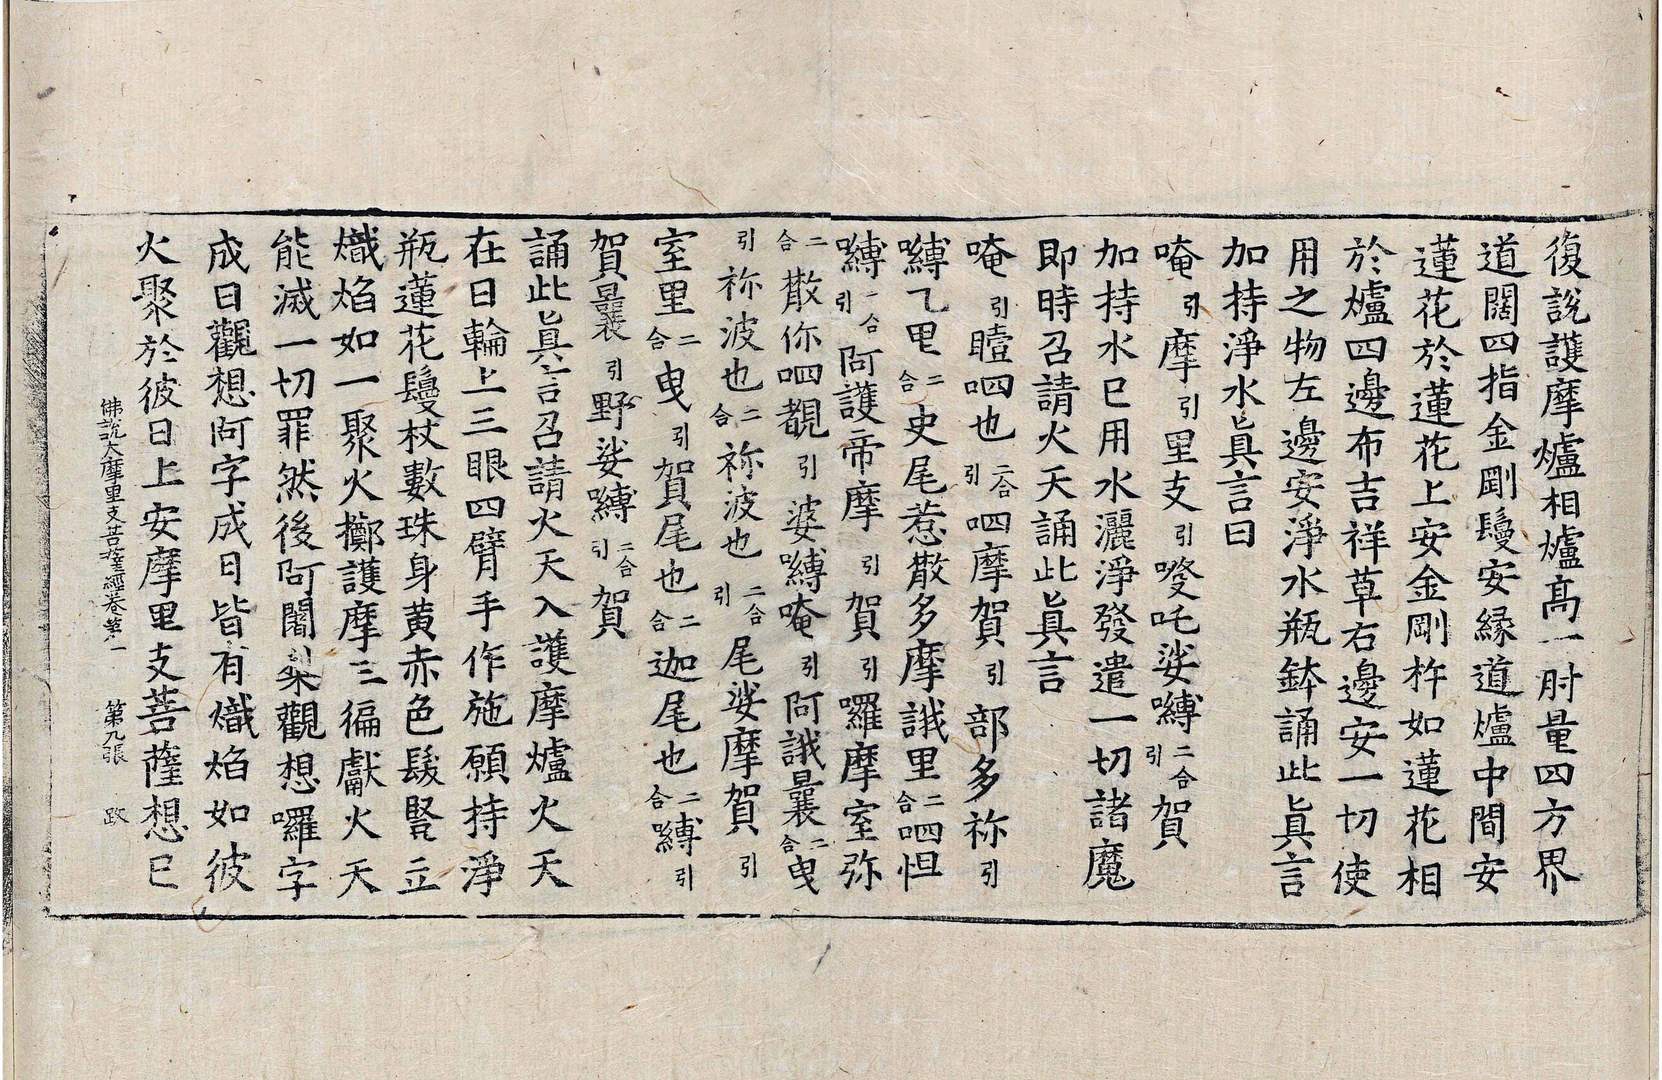 復說護摩爐相爐高一肘量四方界
道闊四指金剛鬘安緣道爐中間安
蓮花於蓮花上安金剛杵如蓮花相
於爐四邊布吉祥草右邊安一切使
用之物左邊安淨水瓶鉢誦此眞言
加持淨水眞言曰
唵引摩引里支引𠺁吒娑嚩二合引賀
加持水已用水灑淨發遣一切諸魔
即時召請火天誦此眞言
唵引曀呬也二合引呬摩賀引部多祢引
嚩乙里二合史尾惹散多摩誐里二合呬怛
嚩二合引阿護帝摩引賀引囉摩室弥
二合散你呬覩引婆嚩唵引阿誐曩二合曳
引祢波也二合祢波也二合引尾娑摩賀引
室里二合曳引賀尾也二合迦尾也二合嚩引
賀曩引野娑嚩二合引賀
誦此眞言召請火天入護摩爐火天
在日輪上三眼四臂手作施願持淨
瓶蓮花鬘杖數珠身黃赤色髮竪立
熾焰如一聚火擲護摩三徧獻火天
能滅一切罪然後阿闍梨觀想囉字
成日觀想阿字成日皆有熾焰如彼
火聚於彼日上安摩里支菩薩想已
佛說大摩里支菩薩經卷第一 第九張 政